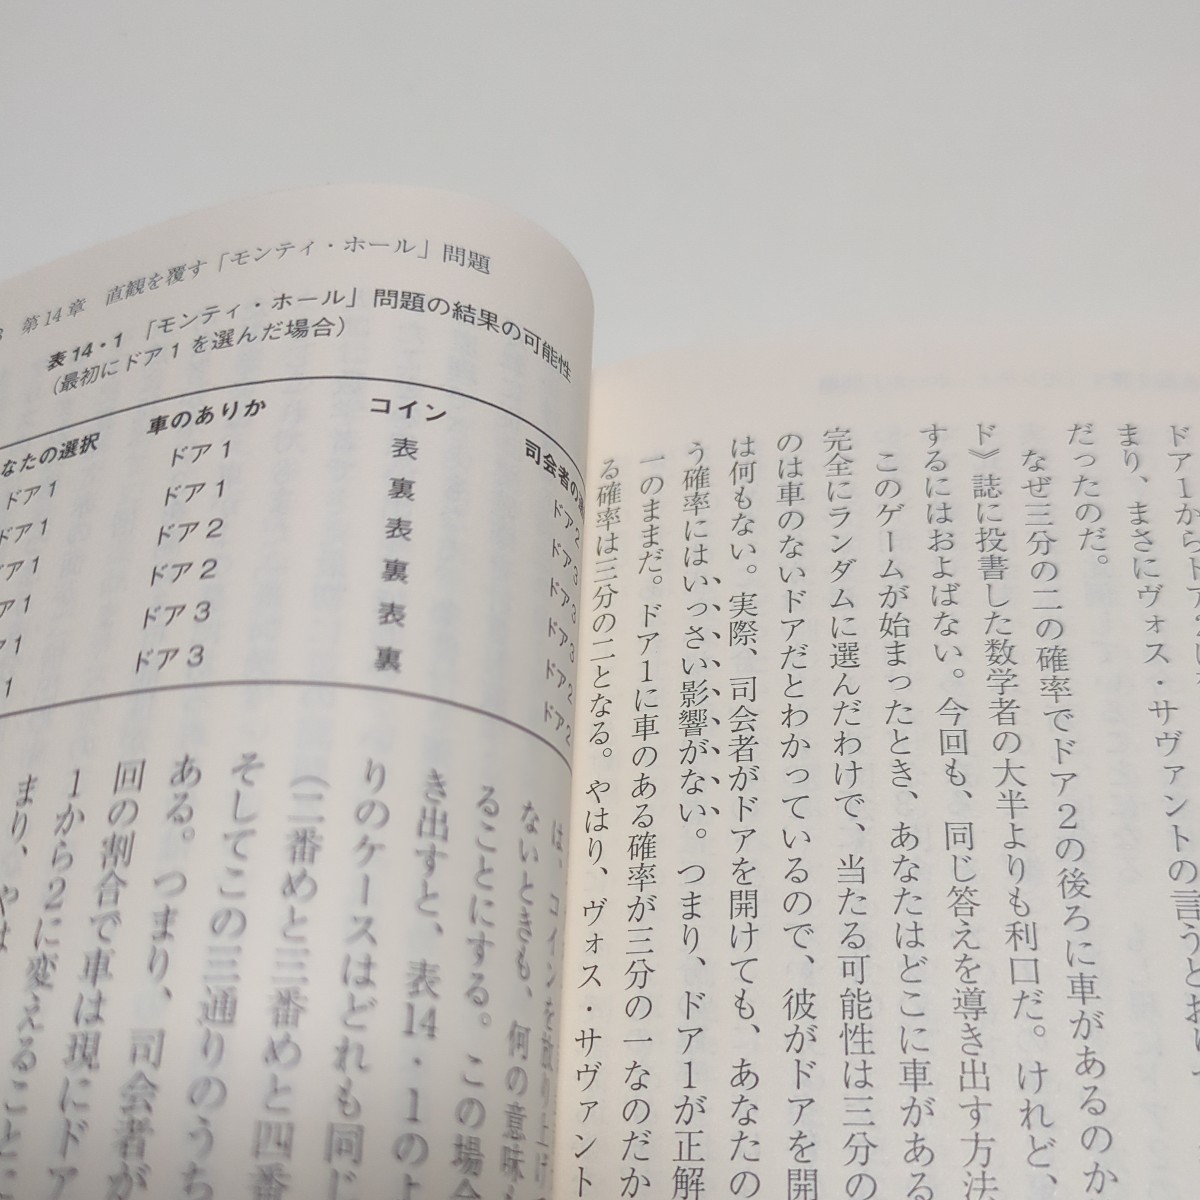 ドア1からドア2に
まり、まさにヴォス・サヴァントの言うとおり
だったのだ。
なぜ三分の二の確率でドア2の後ろに車があるのか
ド》誌に投書した数学者の大半よりも利口だ。けれど、
するにはおよばない。今回も、同じ答えを導き出す方法
このゲームが始まったとき、あなたはどこに車がある
完全にランダムに選んだわけで、当たる可能性は三分の
のは車のないドアだとわかっているので、彼がドアを開
は何もない。実際、司会者がドアを開けても、あなたの
う確率にはいっさい影響がない。つまり、ドア1が正解
一のままだ。ドア1に車のある確率が三分の一なのだか
る確率は三分の二となる。やはり、ヴォス・サヴァント
第14章 直観を覆す「モンティ・ホール」問題
表14・1 「モンティ・ホール」問題の結果の可能性
(最初にドア1を選んだ場合)
なたの選択 車のありか コイン 司会者の
ドア1 ドア1 表 ドア2
ドア1 ドア1 裏 ドア3
ドア1 ドア2 表 ドア3
ア1 ドア2 裏 ドア3
ア1 ドア3 表 ドア2
1 ドア3 裏 ドア2
は、コインを放り上げ
ないときも、何の意味
ることにする。この場合
き出すと、表14・1のよ
りのケースはどれも同じ
(二番めと三番めと四番
そしてこの三通りのうち
ある。つまり、司会者が
回の割合で車は現にドア
1から2に変えること
まり、やは